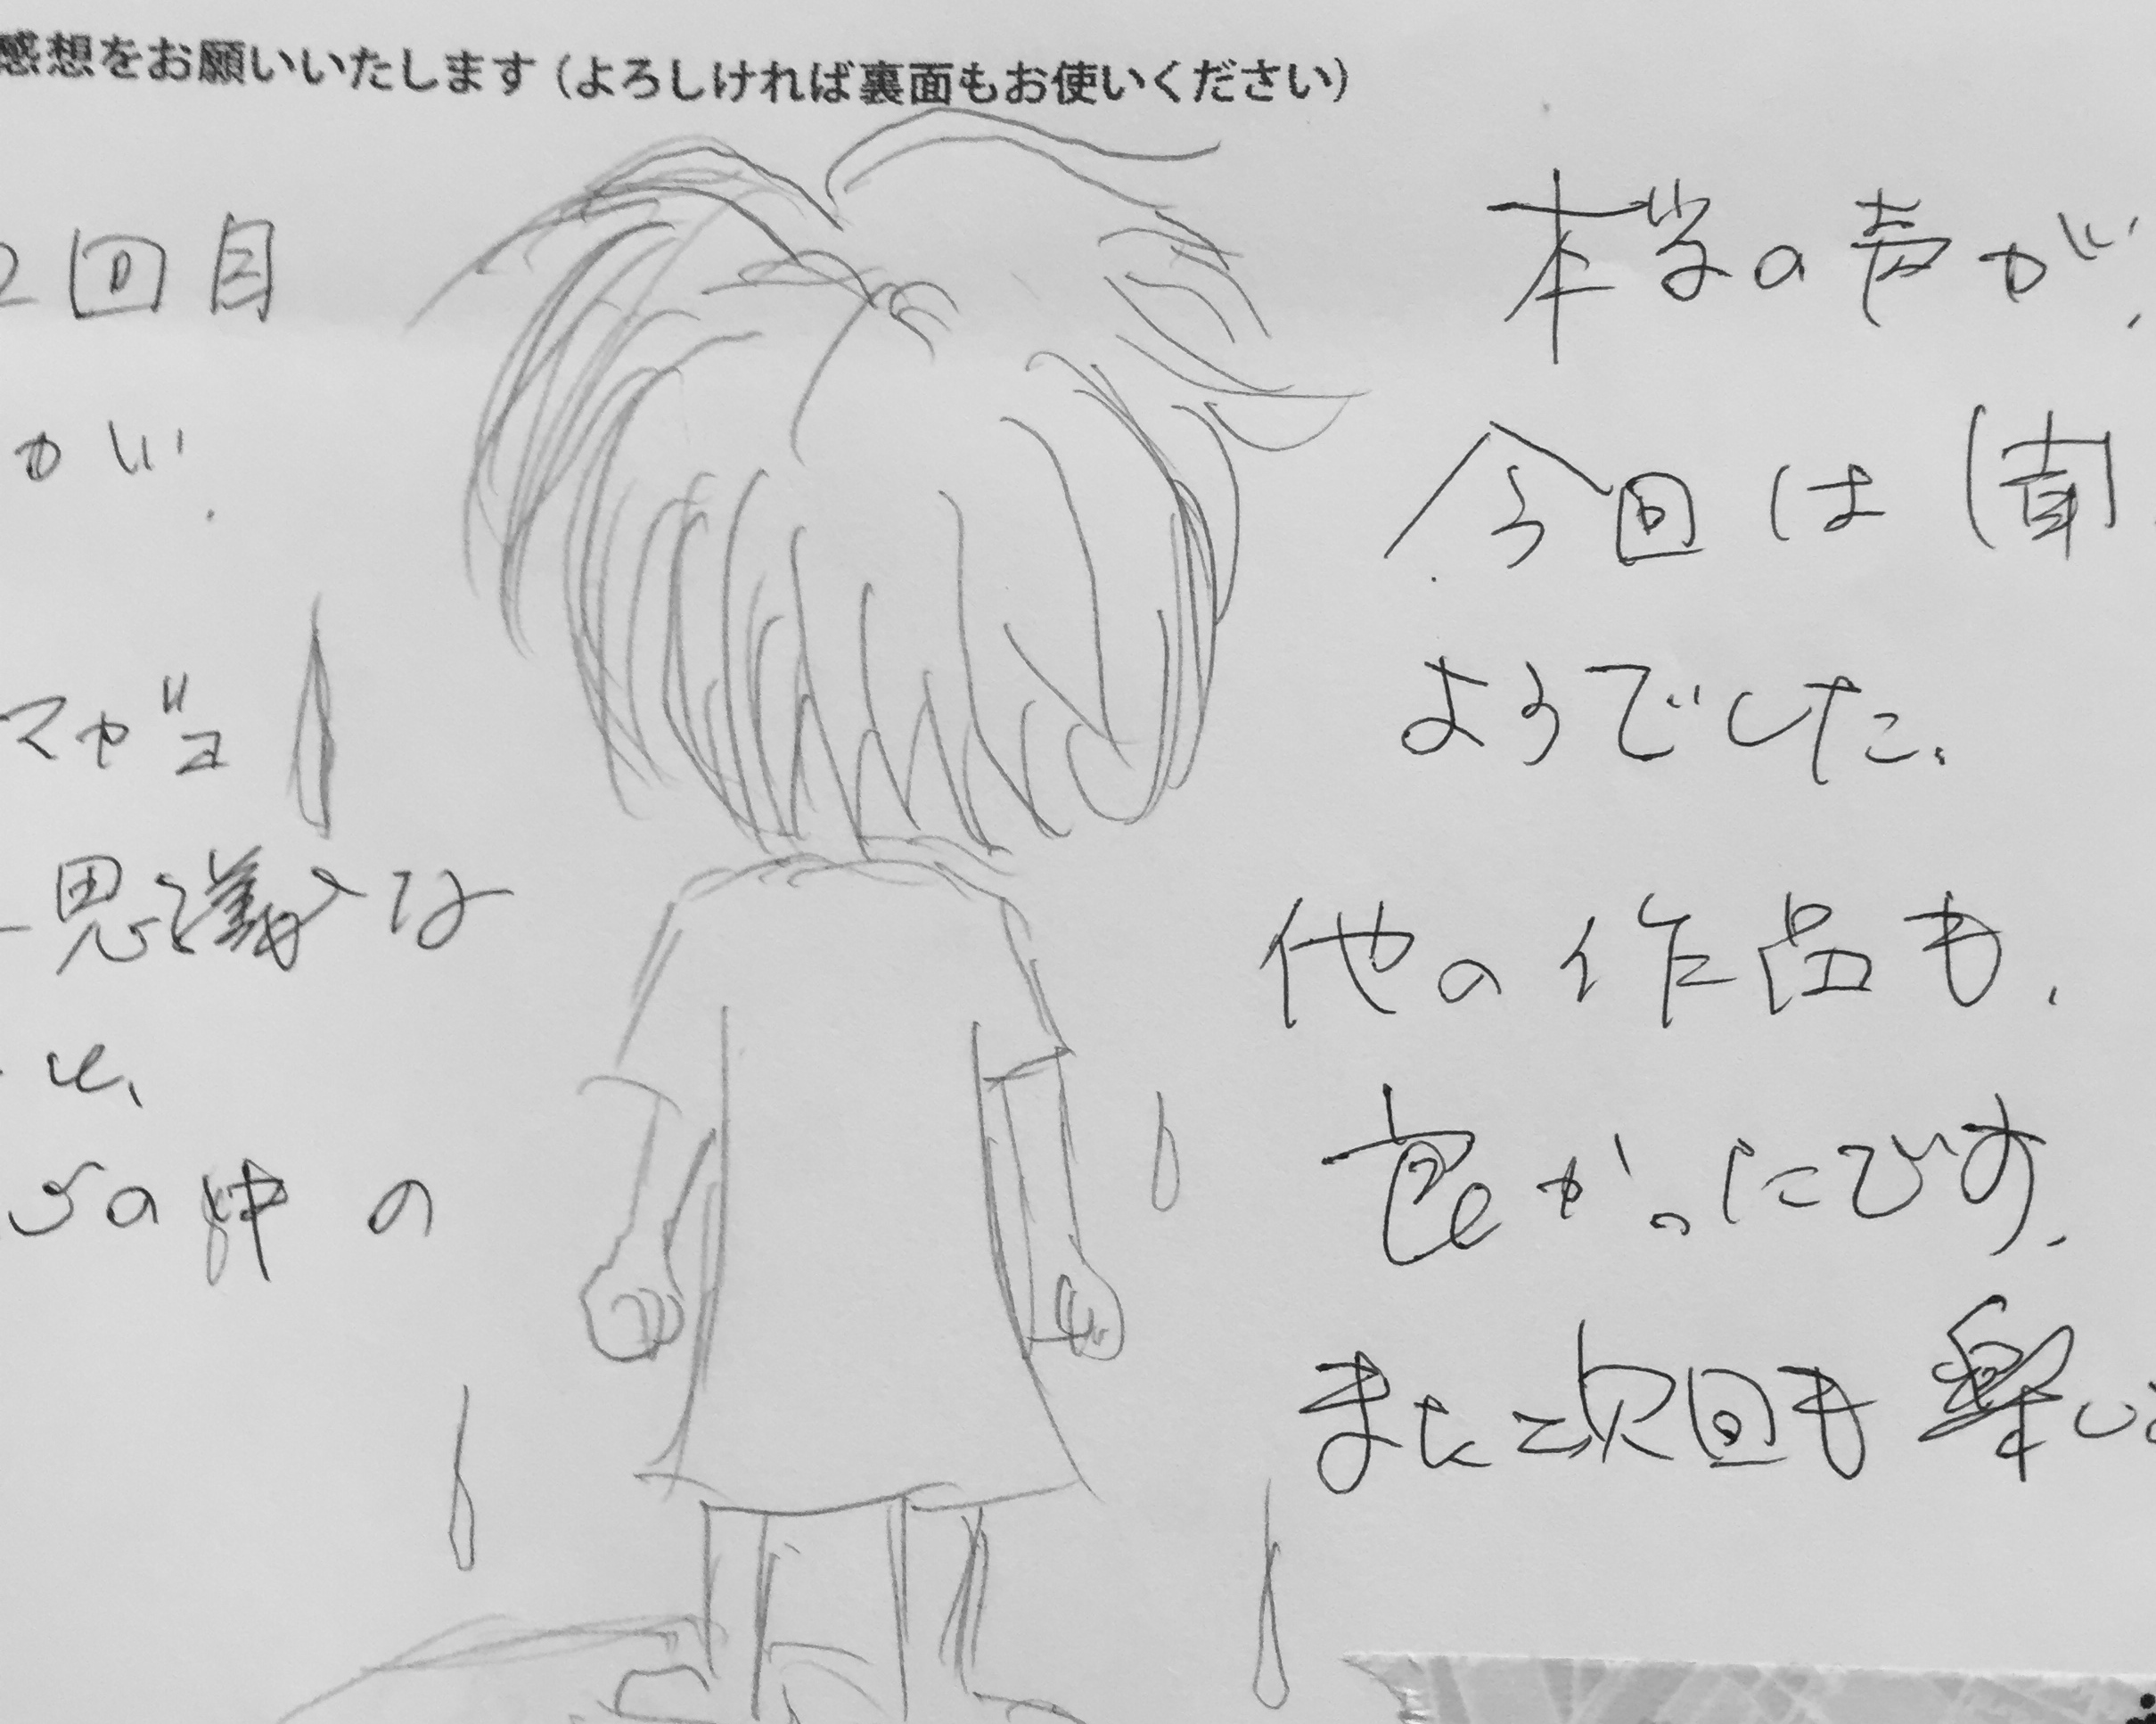 感想をお願いいたします（よろしければ裏面もお使いください）
2回目
が、
マゲョ
思議な
の中の
本当の声が、
今回は聞
ようでした。
他の作品も、
良かったです。
また次回も楽し